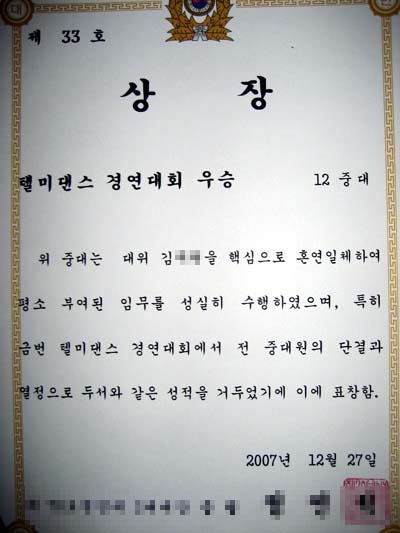 제 33 호
상 장
텔미댄스 경연대회 우승 12 중대
위 중대는 대위 김 을 핵심으로 혼연일체하여
평소 부여된 임무를 성실히 수행하였으며, 특히
금번 텔미댄스 경연대회에서 전 중대원의 단결과
열정으로 두서와 같은 성적을 거두었기에 이에 표창함.
2007년 12월 27일